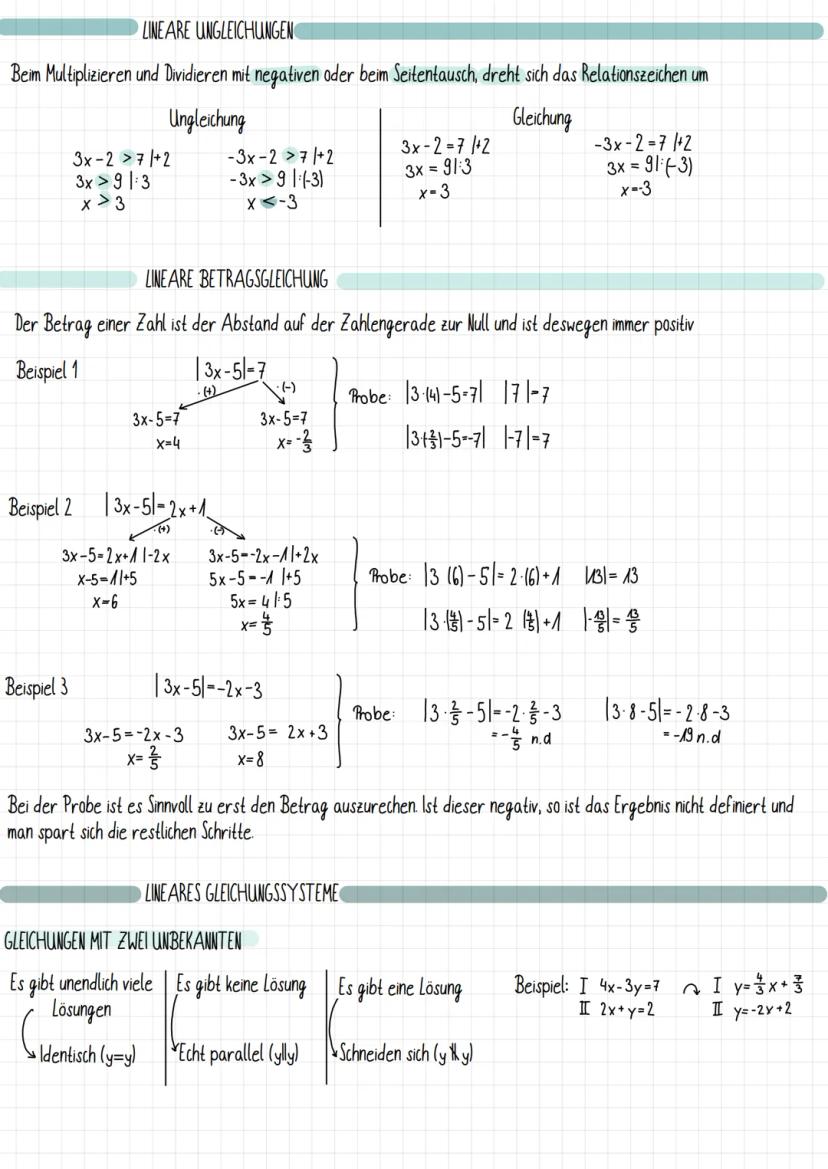 LINEARE UNGLEICHUNGEN
Beim Multiplizieren und Dividieren mit negativen oder beim Seitentausch, dreht sich das Relationszeichen um
Ungleichung
3x-2 > 7 |+2
3x > 9 |:3
x > 3
-3x-2 > 7 |+2
-3x > 9 |:(-3)
x < -3
Gleichung
3x-2=7 |+2
3x = 9|:3
x=3
-3x-2=7 |+2
3x = 9|:(-3)
x=-3
LINEARE BETRAGSGLEICHUNG
Der Betrag einer Zahl ist der Abstand auf der Zahlengerade zur Null und ist deswegen immer positiv
Beispiel 1
|3x-5|=7
·(+) ·(-)
3x-5=7
x=4
3x-5=7
x= -2/3
Probe: |3·(4)-5=7| |7|=7
|3·(-2/3)-5=-7| |-7|=7
Beispiel 2 |3x-5|=2x+1
·(+) ·(-)
3x-5=2x+1 |-2x
x-5=1|+5
x=6
3x-5=-2x-1|+2x
5x-5=-1 |+5
5x=4 |:5
x=4/5
Probe: |3 (6)-5|= 2·(6)+1 |13|= 13
|3·(4/5)-5|= 2 (4/5)+1 |-13/5|= 13/5
Beispiel 3 |3x-5|=-2x-3
3x-5=-2x-3
x=2/5
3x-5= 2x+3
x=8
Probe: |3·2/5-5|=-2·2/5-3
=-4/5 n.d
|3·8-5|=-2·8-3
=-19 n.d
Bei der Probe ist es Sinnvoll zu erst den Betrag auszurechen. Ist dieser negativ, so ist das Ergebnis nicht definiert und
man spart sich die restlichen Schritte.
LINEARES GLEICHUNGSSYSTEME
GLEICHUNGEN MIT ZWEI UNBEKANNTEN
Es gibt unendlich viele
Lösungen
Identisch (y=y)
Es gibt keine Lösung
Echt parallel (y||y)
Es gibt eine Lösung
Schneiden sich (y∦y)
Beispiel: I 4x-3y=7
II 2x+y=2
I y=4/3x+7/3
II y=-2x+2